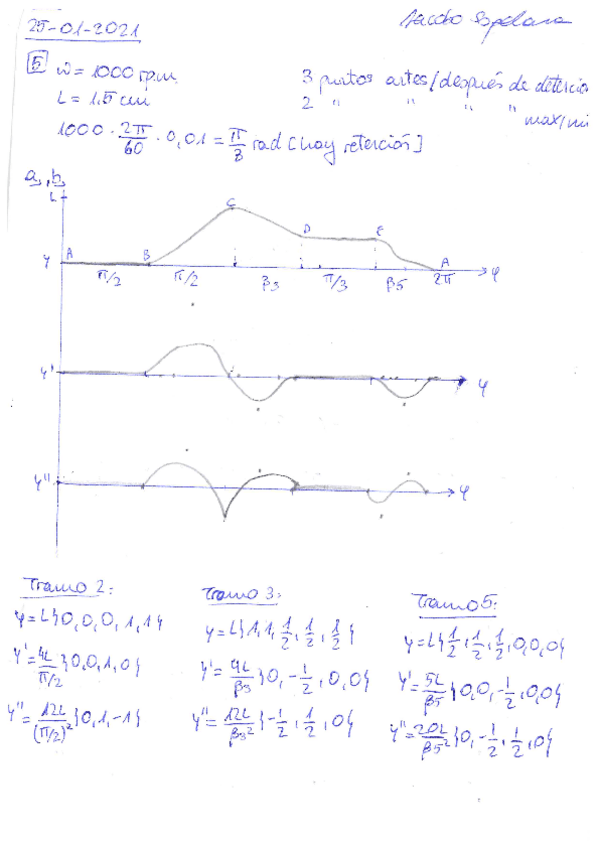 25-01-2021
Jacobo
5 ω = 1000 r.p.m.
3 puntos antes/después de detención
L = 1,5 cm
2 " " " " max/mi
1000 · 2π/60 · 0,01 = π/3 rad [hay retención]
a), b)
L
C
D
E
A
B
A
y
π/2
π/2
β3
π/3
β5
2π
φ
y'
φ
y''
φ
Tramo 2:
y = L{0,0,0,1,1}
y' = 4L/(π/2) {0,0,1,0}
y'' = 12L/(π/2)² {0,1,-1}
Tramo 3:
y = L{1,1,1/2,1/2,1/2}
y' = 4L/β3 {0,-1/2,0,0}
y'' = 12L/β3² {-1/2,1/2,0}
Tramo 5:
y = L{1/2,1/2,1/2,0,0,0}
y' = 5L/β5 {0,0,-1/2,0,0}
y'' = 20L/β5² {0,-1/2,1/2,0}